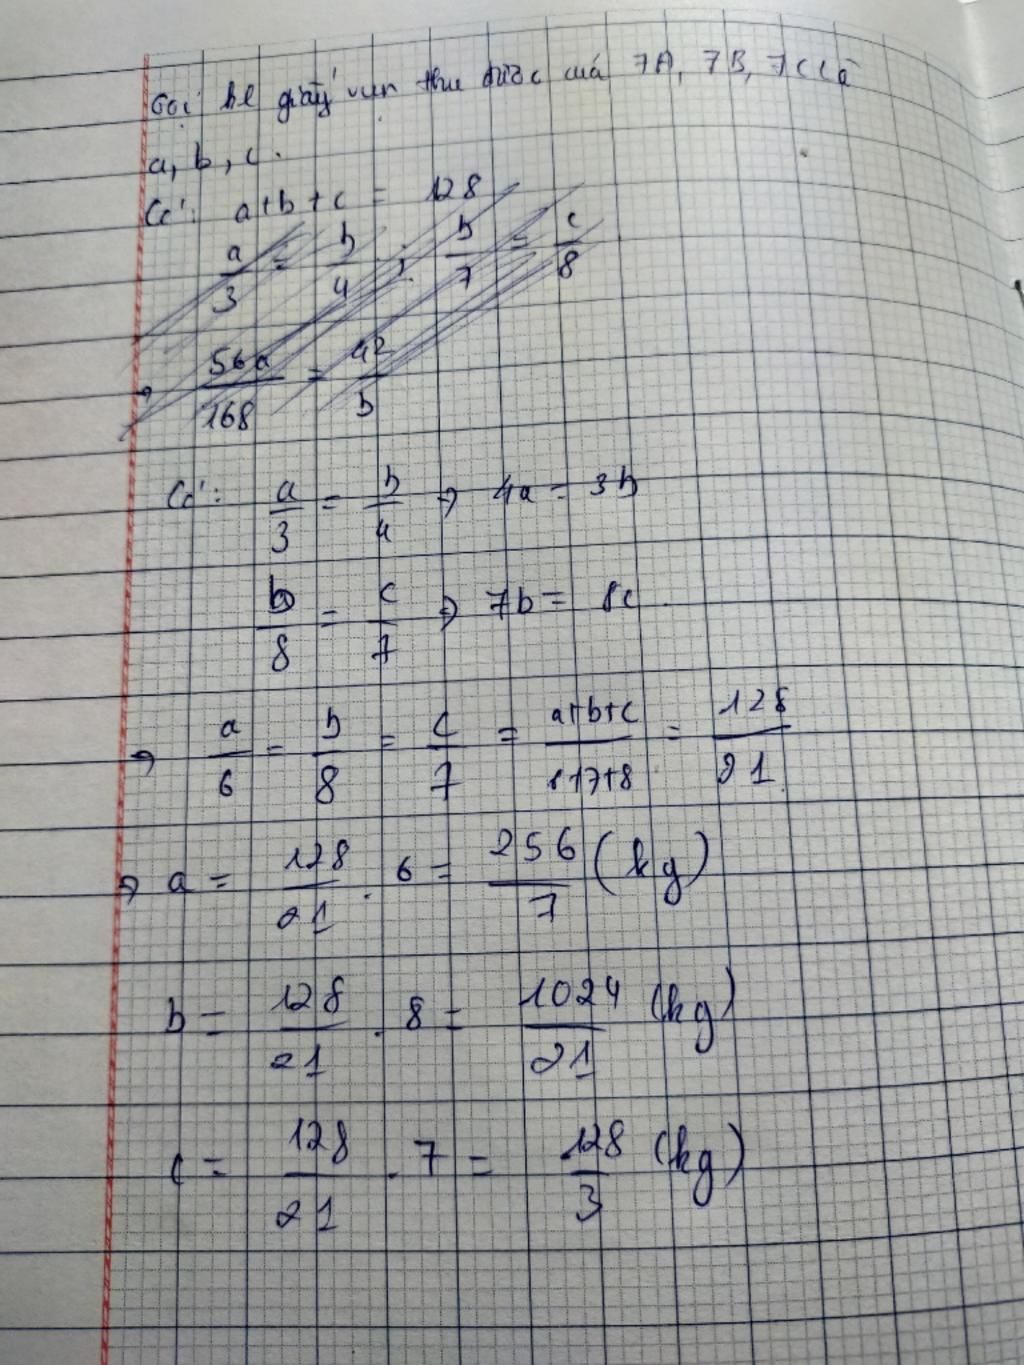 Gọi kl giấy vụn thu được của 7A, 7B, 7C là
a, b, c.
Có: a+b+c = 128
a/3 = b/4 ; b/7 = c/8
→ 56a/168 = 42/b
Có: a/3 = b/4 → 4a = 3b
b/8 = c/7 → 7b = 8c
→ a/6 = b/8 = c/7 = a+b+c/6+7+8 = 128/21
→ a = 128/21 . 6 = 256/7 (kg)
b = 128/21 . 8 = 1024/21 (kg)
c = 128/21 . 7 = 128/3 (kg)